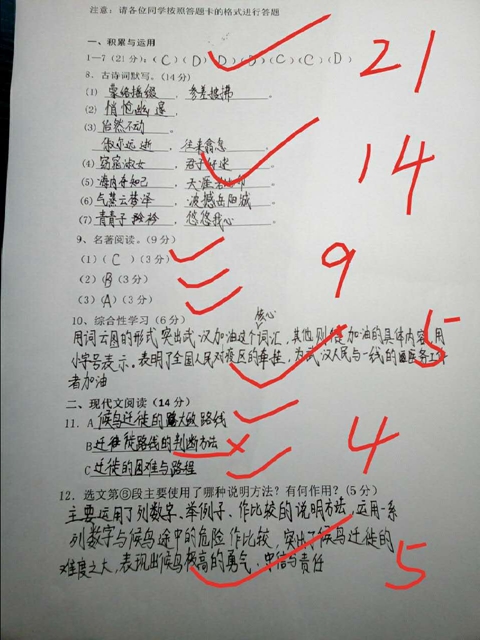 注意：请各位同学按照答题卡的格式进行答题
一、积累与运用
1—7（21分）：（C）（D）（D）（D）（C）（C）（D）
21
8. 古诗词默写。（14分）
(1) 蒙络摇缀，参差披拂。
(2) 悄怆幽邃。
(3) 怡然不动。
俶尔远逝，往来翕忽。
(4) 窈窕淑女，君子好逑。
14
(5) 海内存知己，天涯若比邻。
(6) 气蒸云梦泽，波撼岳阳城。
(7) 青青子衿，悠悠我心。
9、名著阅读。（9分）
(1)（C）（3分）
(2)（B）（3分）
9
(3)（A）（3分）
10、综合性学习（6分）
5
用词云图的形式突出武汉加油这个核心词汇，其他则使加油的具体内容用
小字号表示。表明了全国人民对疫区的牵挂，为武汉人民与一线的医务工作
者加油
二、现代文阅读（14分）
11. A 候鸟迁徙的大致路线
B 迁徙路线的判断方法
4
C 迁徙的困难与路程
12. 选文第⑤段主要使用了哪种说明方法？有何作用？（5分）
主要运用了列数字、举例子、作比较的说明方法，运用一系
列数字与候鸟途中的危险作比较，突出了候鸟迁徙的
难度之大，表现出候鸟极高的勇气、忠信与责任
5